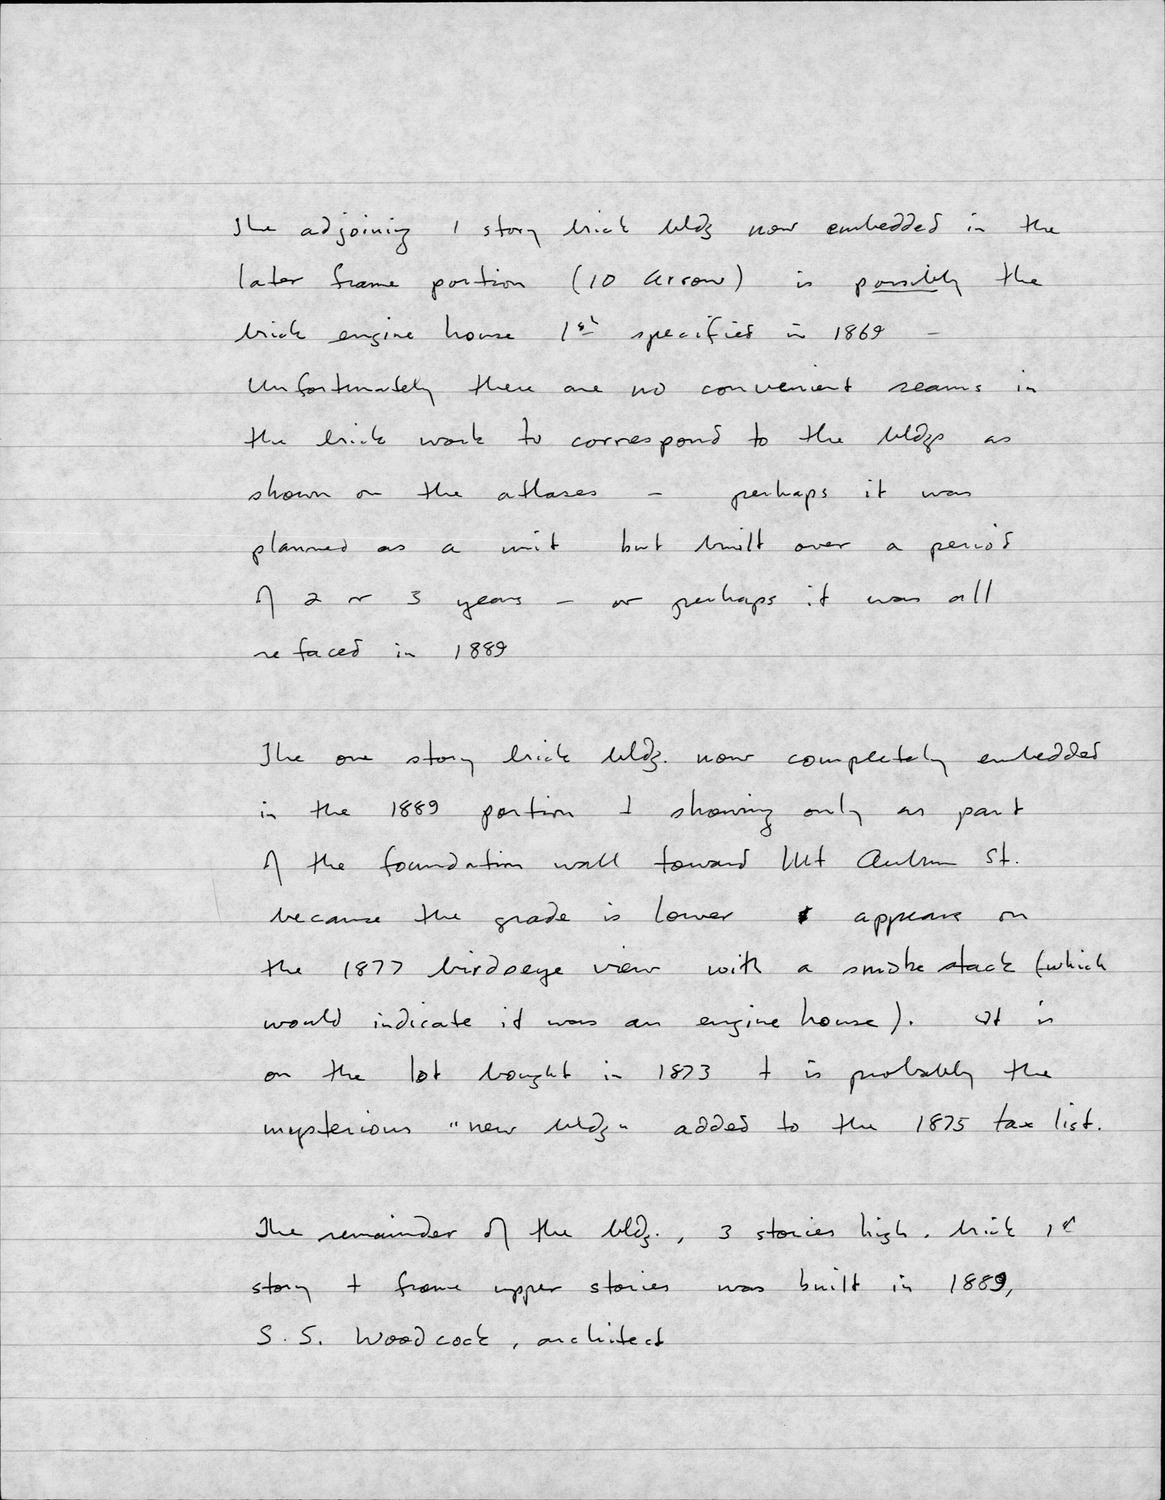 The adjoining 1 story brick bldg now embedded in the
later frame portion (10 Arrow) is possibly the
brick engine house 1st specified in 1869 –
Unfortunately there are no convenient seams in
the brick work to correspond to the bldgs as
shown on the atlases – perhaps it was
planned as a unit but built over a period
of 2 or 3 years – or perhaps it was all
refaced in 1889
The one story brick bldg. now completely embedded
in the 1889 portion + showing only as part
of the foundation wall toward Mt Auburn St.
because the grade is lower appears on
the 1877 birdseye view with a smoke stack (which
would indicate it was an engine house). It is
on the lot bought in 1873 + is probably the
mysterious "new bldg" added to the 1875 tax list.
The remainder of the bldg., 3 stories high, brick 1st
story + frame upper stories was built in 1889,
S. S. Woodcock, architect